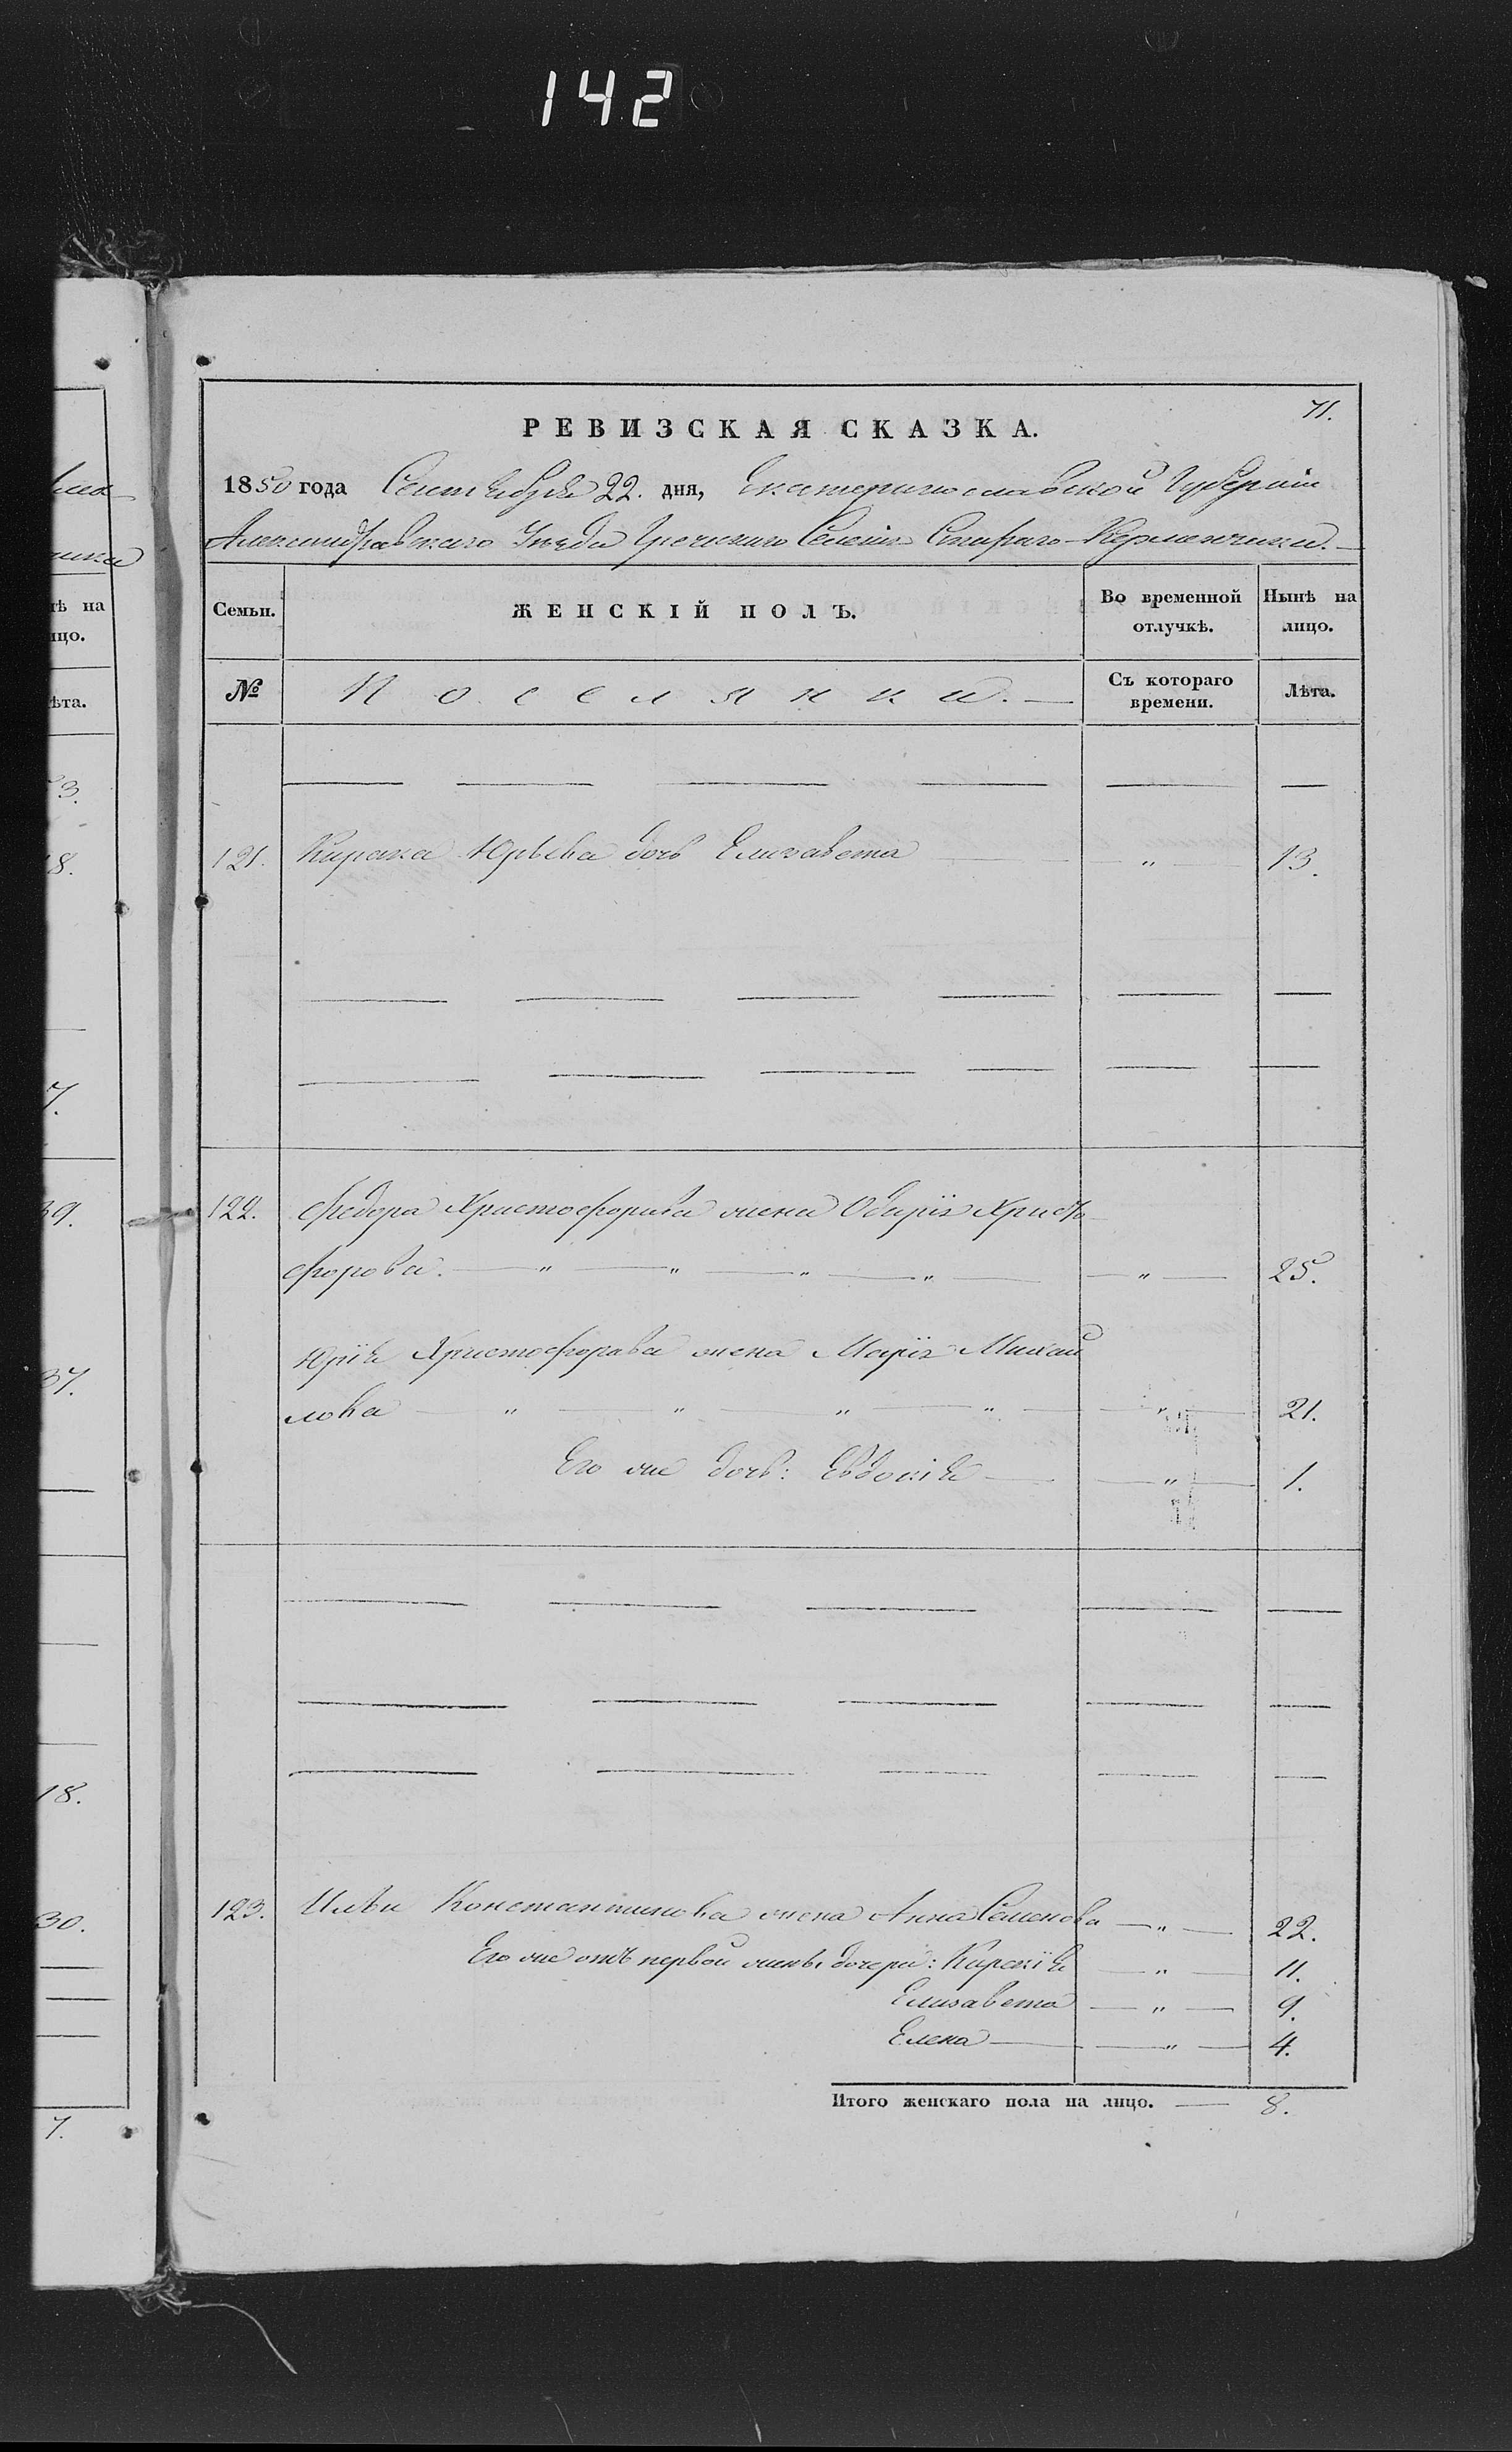 142
71.
РЕВИЗСКАЯ СКАЗКА.
1850 года Сентября 22. дня, Екатеринославской Губерніи
Александровскаго Уѣзда Греческаго Селенія Стараго-Керменчика.
Семьи.
ЖЕНСКІЙ ПОЛЪ.
Во временной отлучкѣ.
Нынѣ на лицо.
№
Поселянки.
Съ котораго времени.
Лѣта.
121. Юрьева дочь Елизавета " 13.
122. Федора Христофорова жена Христо
форова. " " " " " 25.
Юрія Христофорова жена Марія Михай
лова " " " " " 21.
Его же дочь: Евдокія " 1.
123. Ильи Константинова жена Анна Семенова " 22.
Его же отъ первой жены дочери: Кирекія " 11.
Елизавета " 9.
Елена " 4.
Итого женскаго пола на лицо. 8.
тѣ на
ицо.
ѣта.
3.
8.
7.
39.
37.
18.
30.
7.